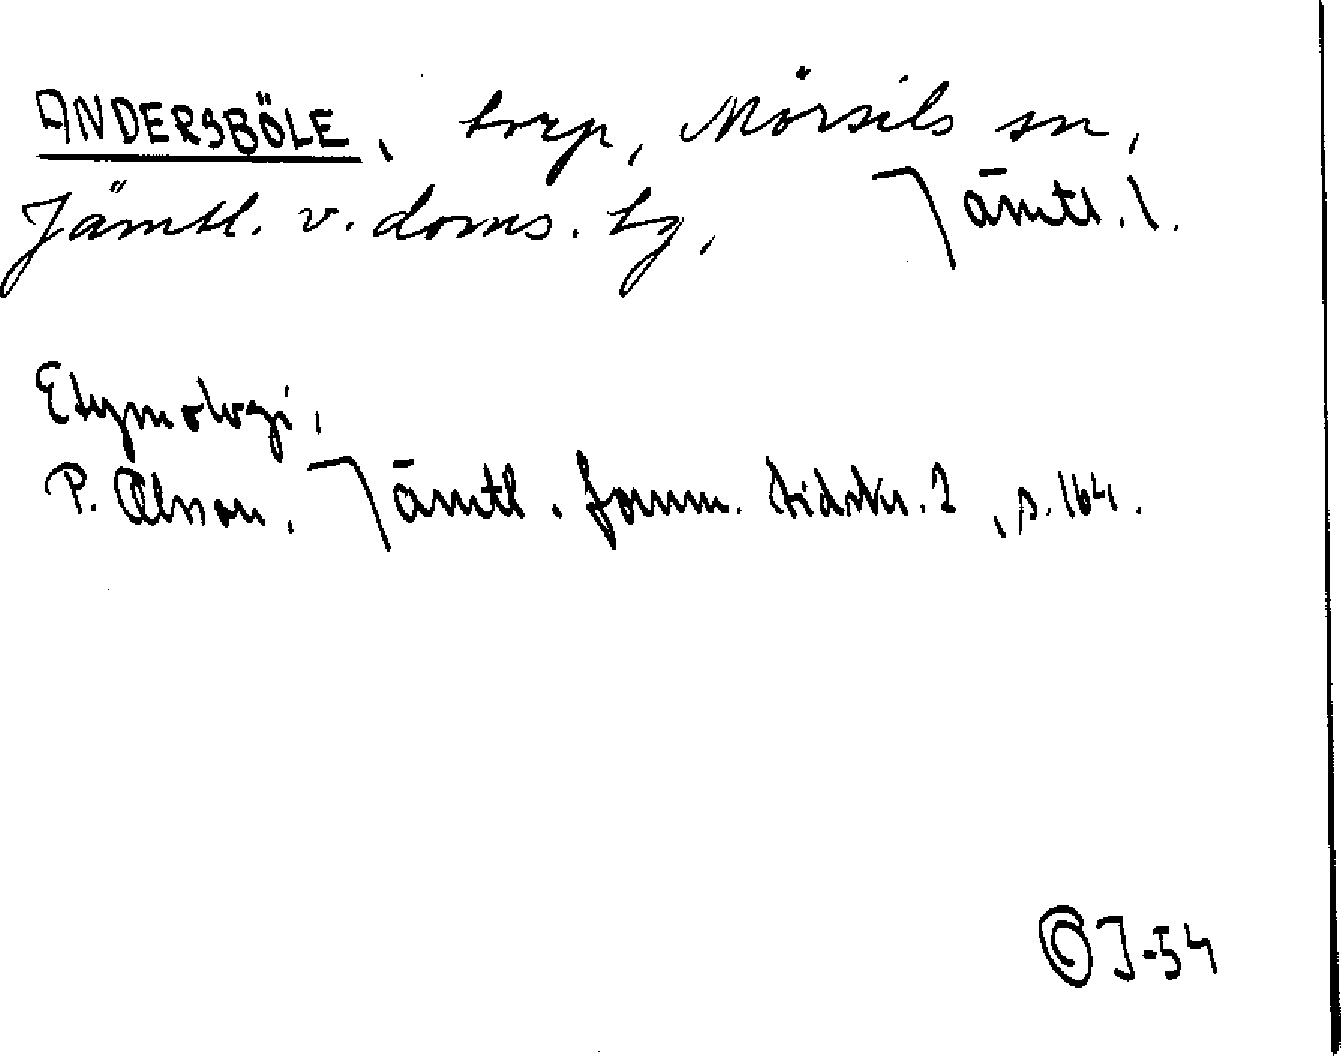 ANDERSBÖLE, torp, Mörsils sn,
Jämtl. v. doms. tg, Jämtl. l.
Etymologi,
P. Olsson, Jämtl. fornm. tidskr. 2, s. 164.
J-54